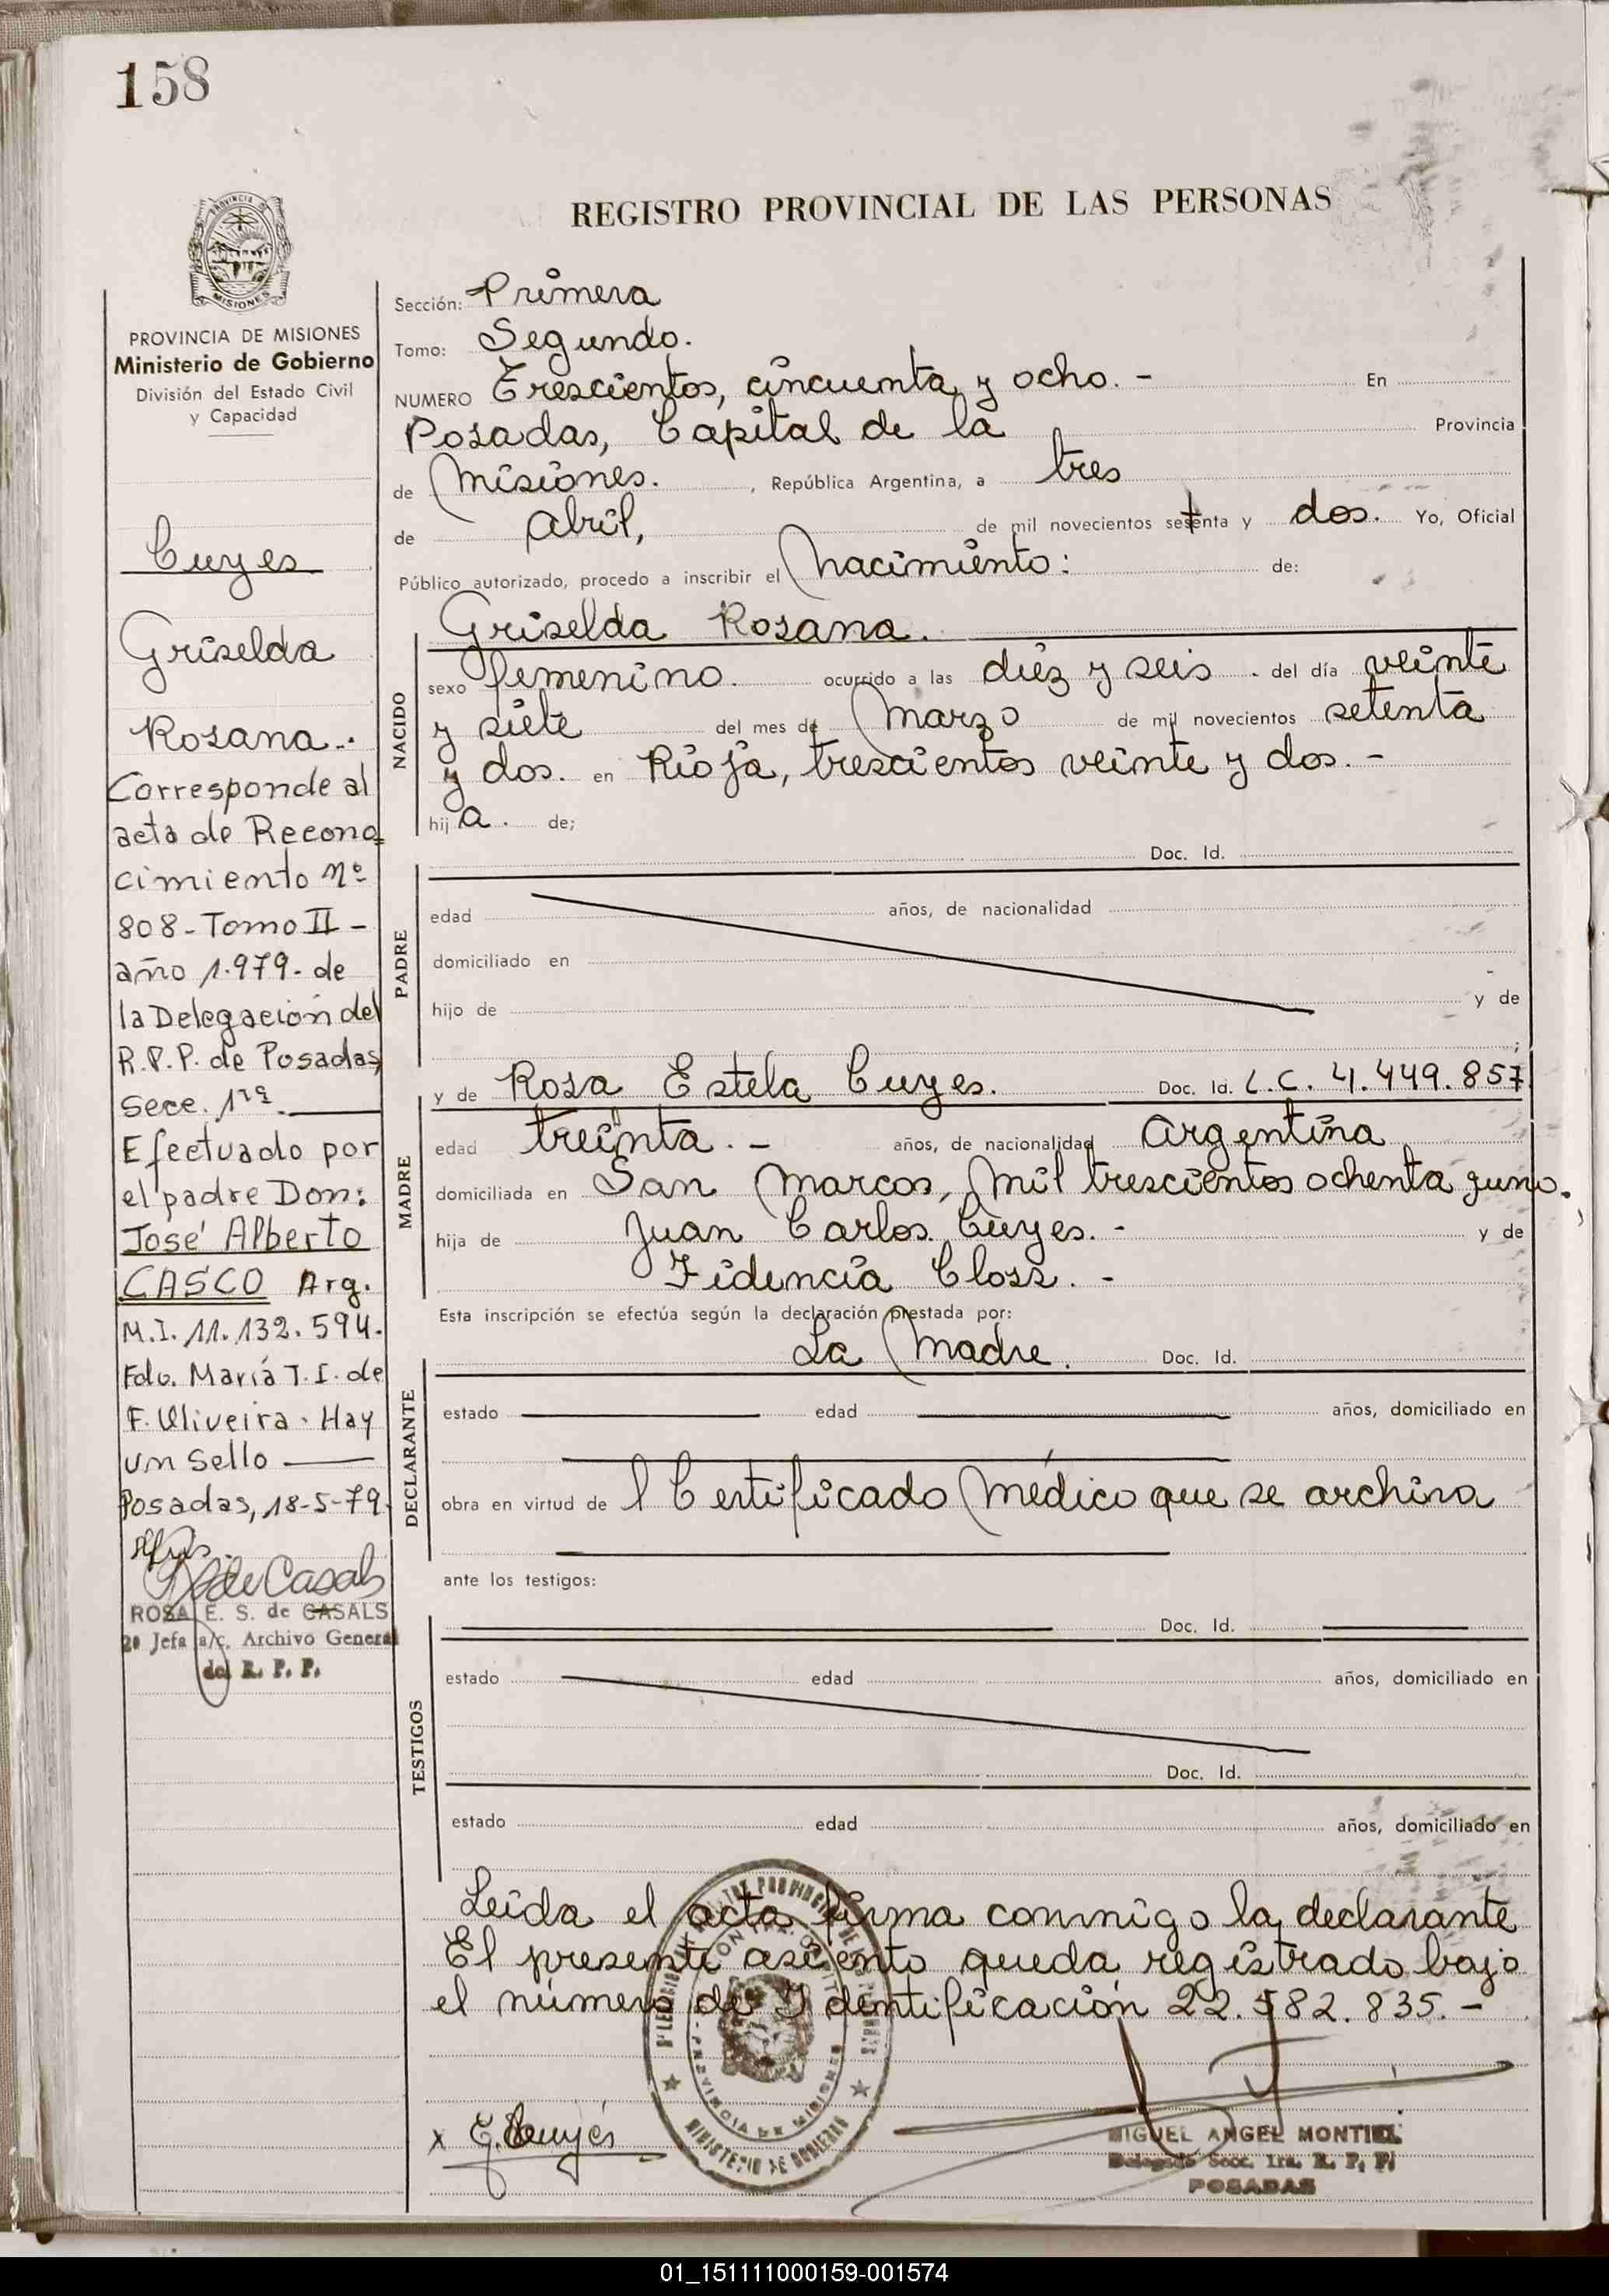 158
REGISTRO PROVINCIAL DE LAS PERSONAS
PROVINCIA DE MISIONES
Ministerio de Gobierno
División del Estado Civil
y Capacidad
Cuyes
Griselda
Rosana..
Corresponde al
acta de Recono
cimiento Nº
808 - Tomo II -
año 1.979 - de
la Delegación del
R.P.P. de Posadas,
Secc. 1ra.
Efectuado por
el padre Don:
José Alberto
CASCO Arg.
M.I. 11.132.594.
Fdo. María T. I. de
F. Oliveira. Hay
un sello
Posadas, 18-5-79
ROSA E. S. de CASALS
2º Jefa a/c. Archivo General
del R. P. P.
Sección: Primera
Tomo: Segundo.
NUMERO Trescientos, cincuenta y ocho. - En
Posadas, Capital de la Provincia
de Misiones. , República Argentina, a tres
de Abril, de mil novecientos setenta y dos. Yo, Oficial
Público autorizado, procedo a inscribir el Nacimiento: de:
NACIDO
Griselda Rosana.
sexo femenino. ocurrido a las diez y seis. del día veinte
y siete del mes de Marzo de mil novecientos setenta
y dos. en Rioja, trescientos veinte y dos. -
hij a. de;
PADRE
Doc. Id.
edad años, de nacionalidad
domiciliado en
hijo de y de
;
MADRE
y de Rosa Estela Cuyes. Doc. Id. L.C. 4.449.857
edad treinta. - años, de nacionalidad Argentina
domiciliada en San Marcos, Mil trescientos ochenta y uno.
hija de Juan Carlos Cuyes. - y de
Fidencia Closs. -
Esta inscripción se efectúa según la declaración prestada por:
DECLARANTE
La Madre. Doc. Id.
estado edad años, domiciliado en
obra en virtud de l Certificado Médico que se archiva
ante los testigos:
TESTIGOS
Doc. Id.
estado edad años, domiciliado en
Doc. Id.
estado edad años, domiciliado en
Leida el acta firma conmigo la declarante
El presente asiento queda registrado bajo
el número de Identificación 22.582.835. -
PROVINCIA DE MISIONES
MINISTERIO DE GOBIERNO
x Cuyés
MIGUEL ANGEL MONTIEL
Delegado Secc. 1ra. R. P. P.
POSADAS
01_151111000159-001574